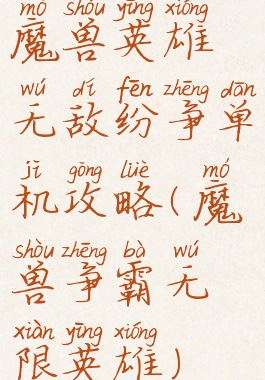 mó shòu yīng xióng
魔兽英雄
wú dí fēn zhēng dān
无敌纷争单
jī gōng lüè mó
机攻略(魔
shòu zhēng bà wú
兽争霸无
xiàn yīng xióng
限英雄)